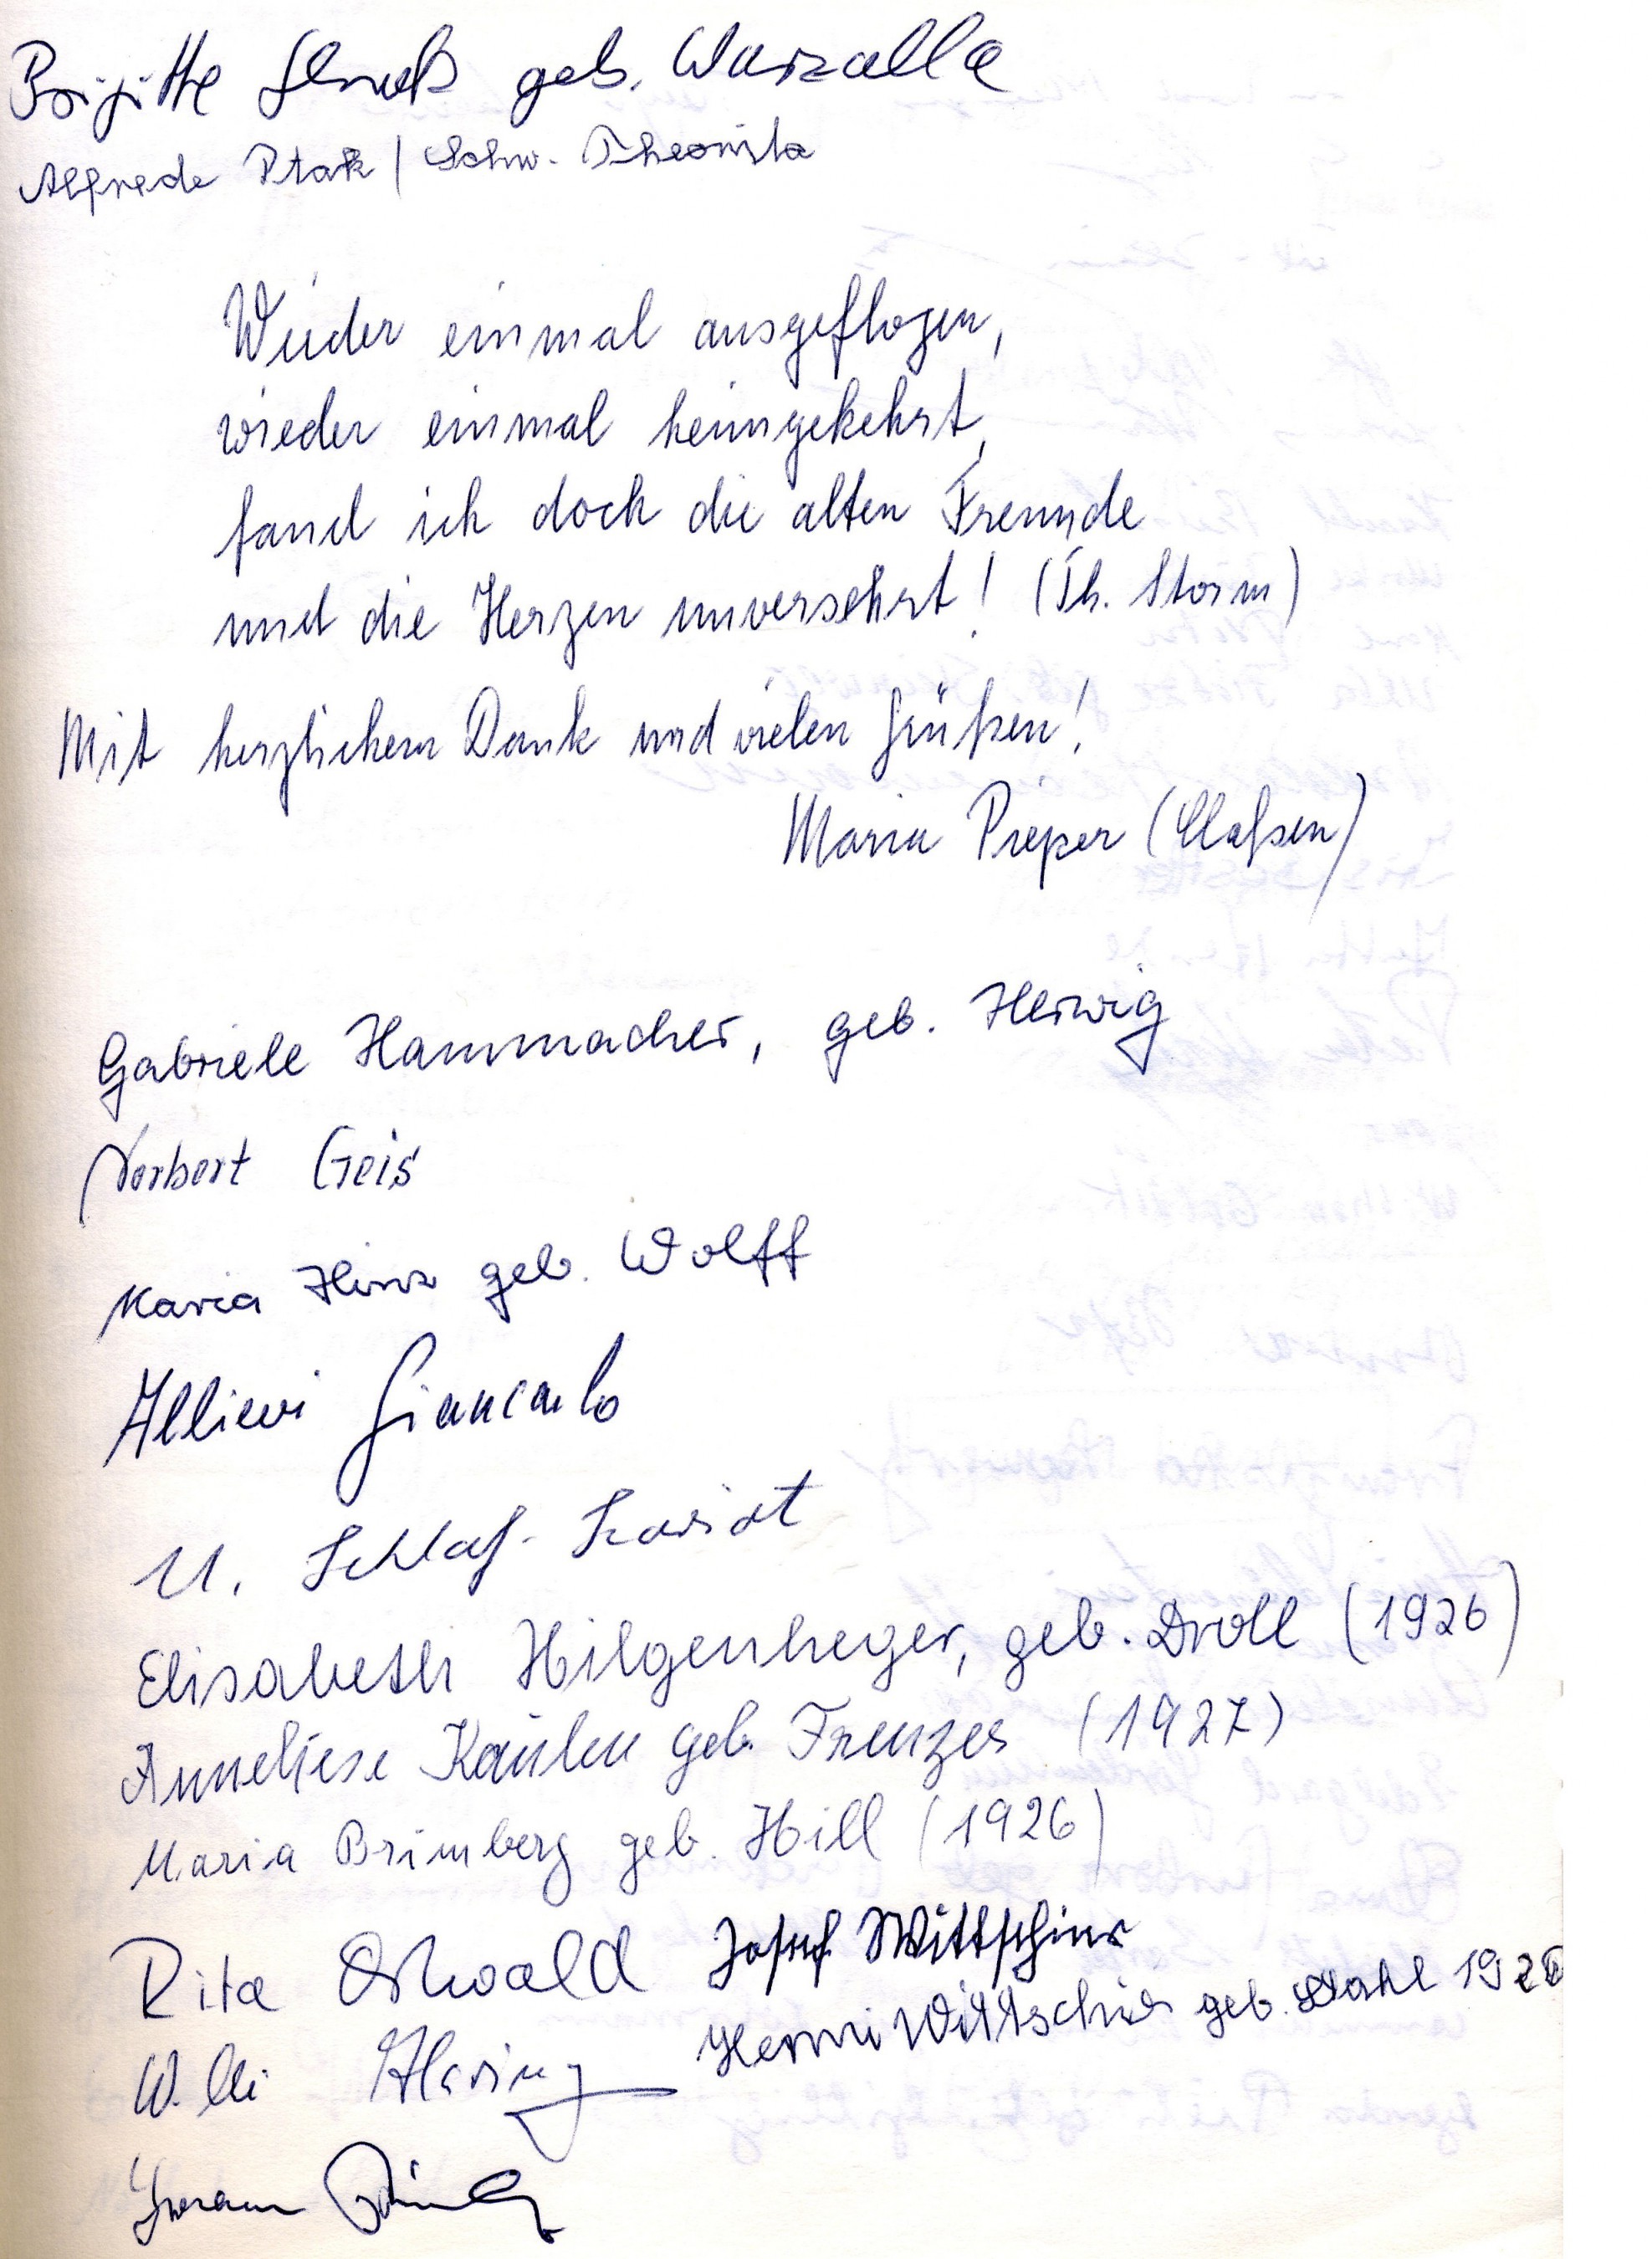 Brigitte geb. Warzalla
Alfrede Ptak / Schw. Theonita
Wieder einmal ausgeflogen,
wieder einmal heimgekehrt,
fand ich doch die alten Freunde
und die Herzen unversehrt! (Th. Storm)
Mit herzlichem Dank und vielen Grüßen!
Maria Pieper (Claßen)
Gabriele Hammacher, geb. Herwig
Norbert Geis
Maria Hinz geb. Wolff
Allievi Giancarlo
U. Schlaf-
Elisabeth Hilgenheger, geb. Droll (1926)
Anneliese Kaulen geb. Frenzer (1927)
Maria Brimberg geb. Hill (1926)
Rita Oswald Josef Wittschier
Henni Wittschier geb. Stahl 1926
Willi Hering